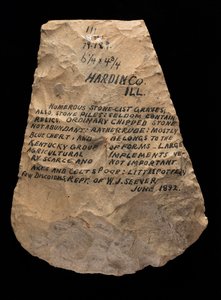 6¼ x 4¾
HARDIN CO.
ILL.
NUMEROUS STONE-CIST GRAVES,
ALSO, STONE PILES: SELDOM CONTAIN
RELICS. ORDINARY CHIPPED STONE
NOT ABUNDANT: RATHER CRUDE: MOSTLY
BLUE CHERT; AND BELONGS TO THE
KENTUCKY GROUP OF FORMS. LARGE
AGRICULTURAL IMPLEMENTS VE-
RY SCARCE AND NOT IMPORTANT
AXES AND CELTS POOR: LITTLE POTTERY
FEW DISCOIDALS, REPT. OF W. J. SEEVER
JUNE, 1892.